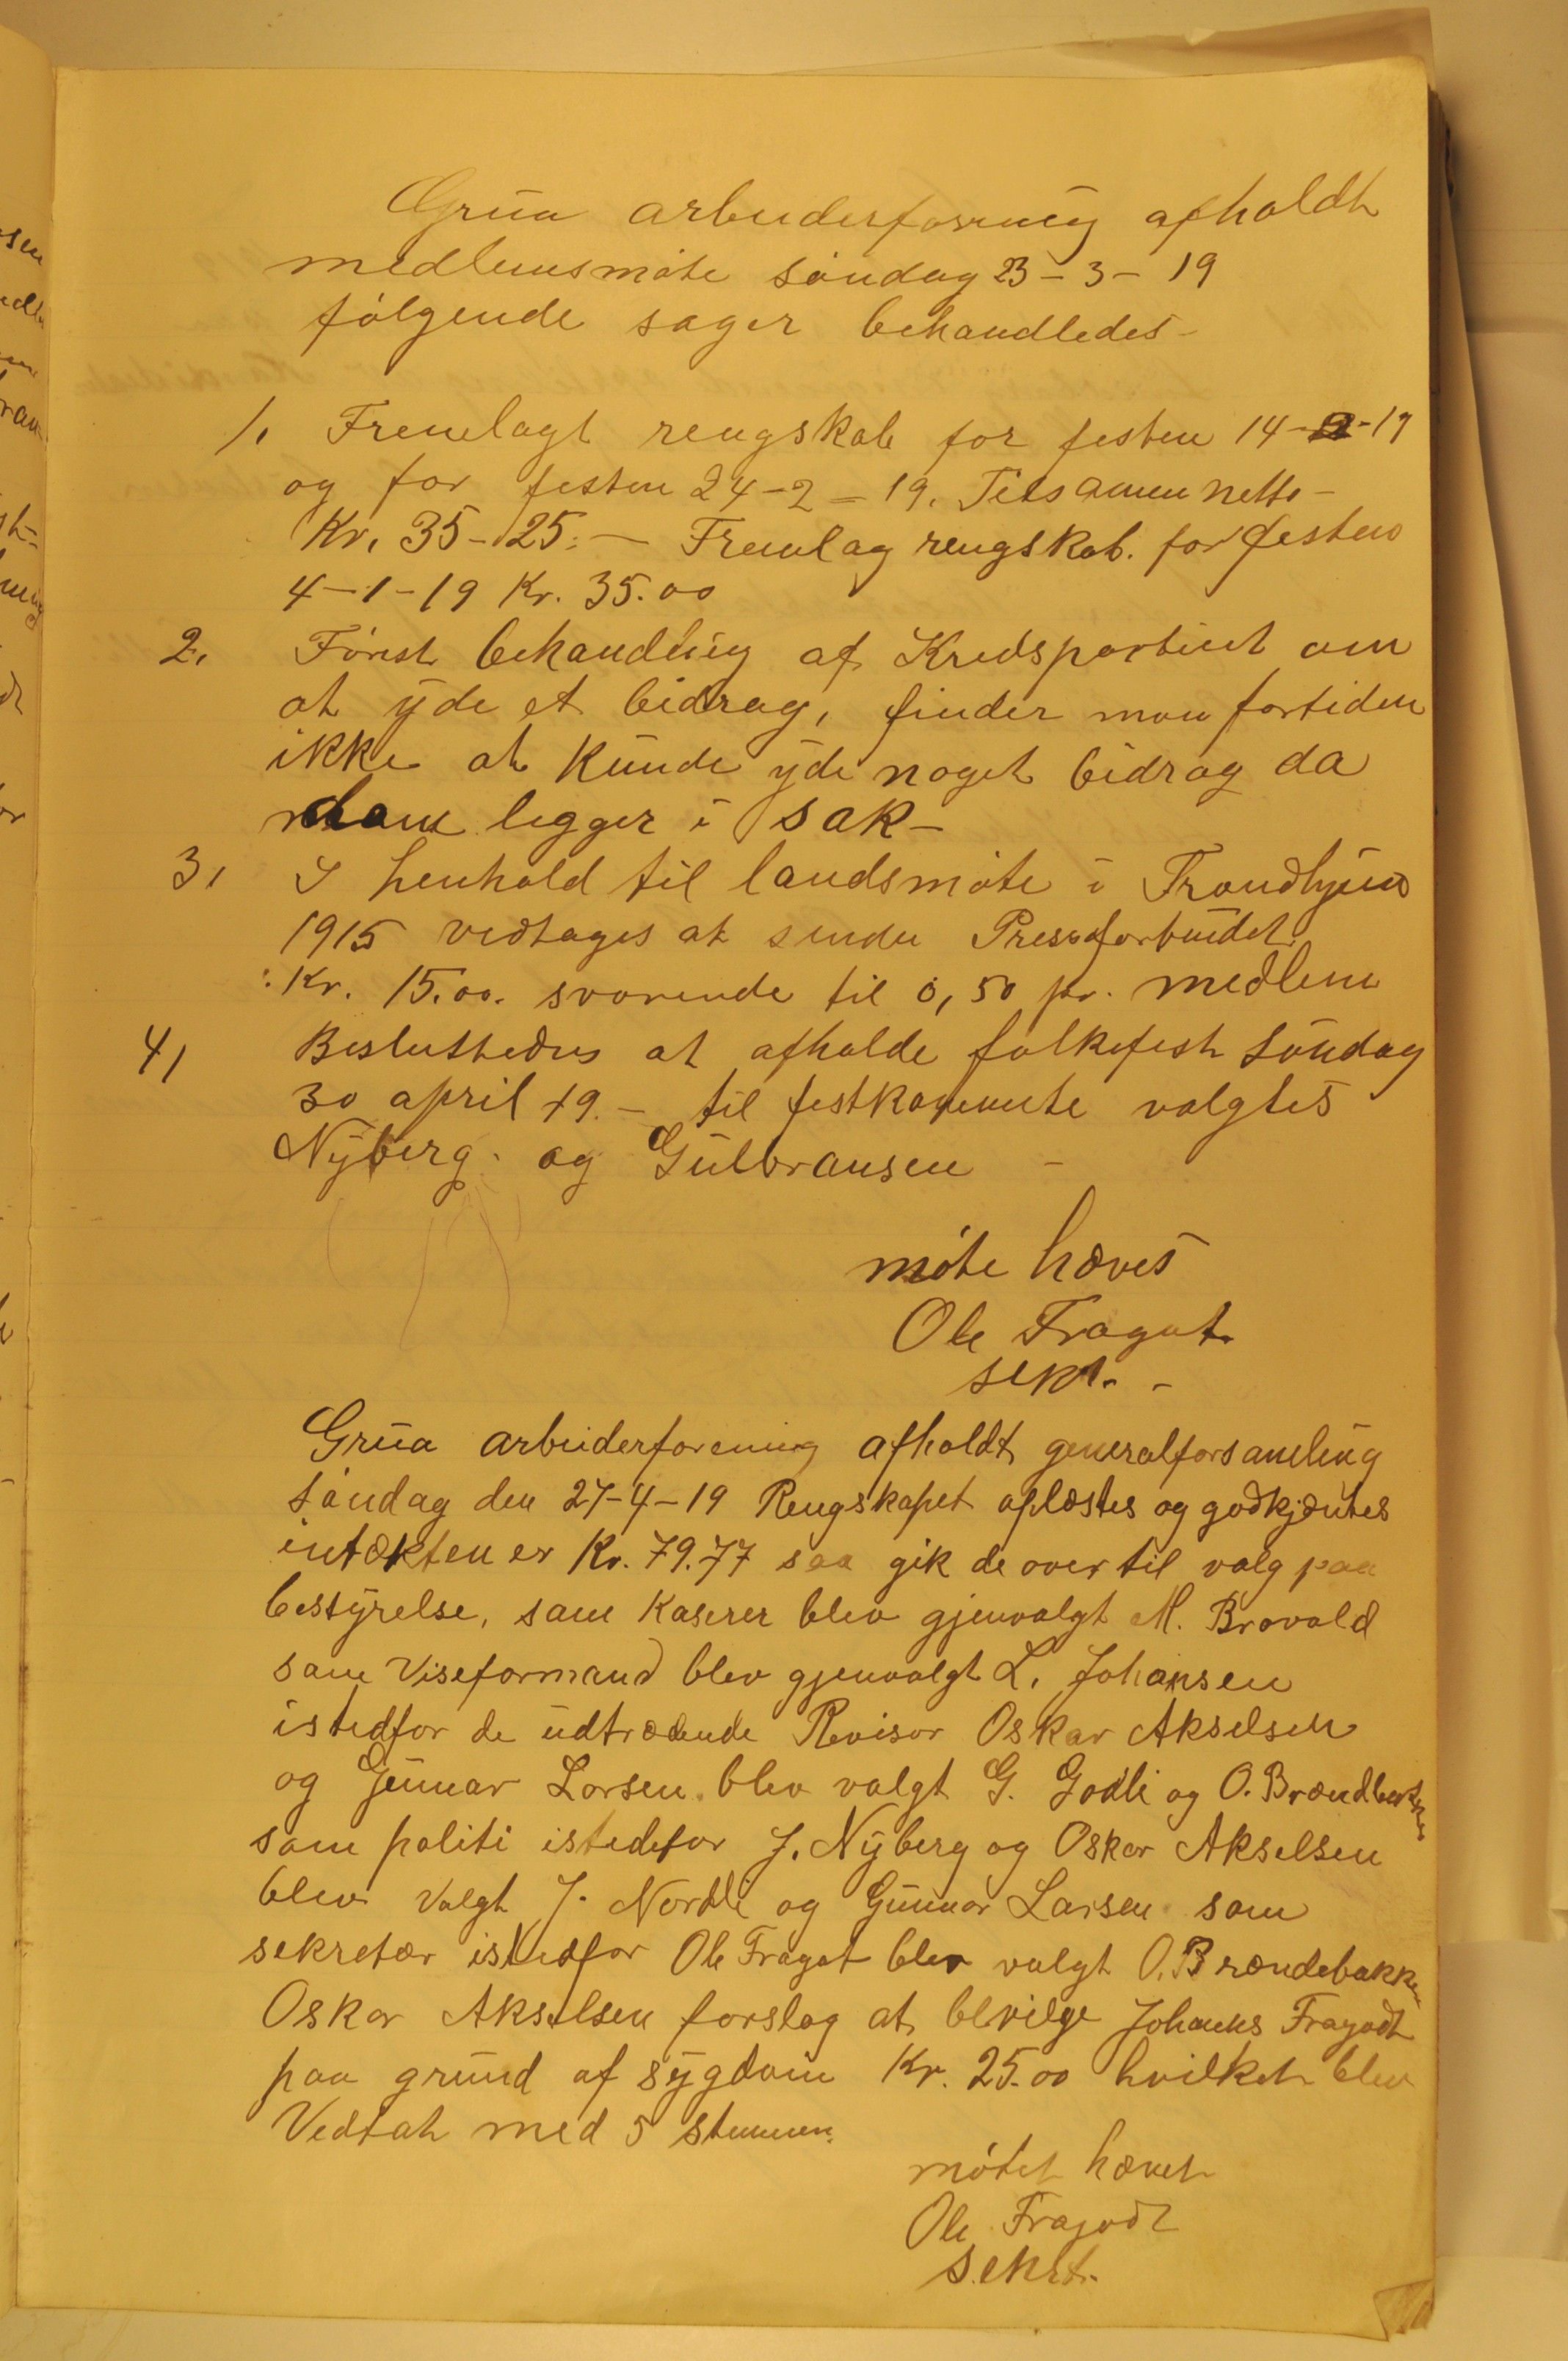 Grua arbeiderforening afholdt
medlemsmøte søndag 23-3-19
følgende sager behandledes-
1. Fremlagt rengskab for festen 14-2-19
og for festen 24-2-19. Tilsammen netto-
Kr. 35-25.- Fremlag rengskab. for festen
4-1-19 Kr. 35.00
2. Først behandling af Kredspartiet om
at yde et bidrag, finder man fortiden
ikke at kunde yde noget bidrag da
legger i sak-
3. I henhold til landsmøte i Trondhjem
1915 vedtages at sende Presseforbundet
Kr. 15.00. svarende til 0,50 pr. medlem
4, Beslustedes at afholde folkefest søndag
30 april 19.- til festkommite valgtes
Nyberg. og Gulbransen -
møte hæves
Ole Fragat.
sekr. -
Grua arbeiderforening afholdt generalforsamling
søndag den 27-4-19 Rengskapet oplæstes og godkjæntes
intækten er Kr. 79.77 saa gik de over til valg paa
bestyrelse, som Kaserer blev gjenvalgt M. Brovald
som Viseformand blev gjenvalgt L. Johansen
istedfor de udtrædende Revisor Oskar Akselsen
og Gunnar Larsen. blev valgt G. Godli og O. Brændbakken
som politi istedefor J. Nyberg og Oskar Akselsen
blev Valgt J. Nordli og Gunnar Larsen som
sekretær istedfor Ole Fragat blev valgt O. Brændebakken
Oskar Akselsen forslag at bevilge Johanes Fragodt
paa grund af sygdom Kr. 25.00 hvilket blev
Vedtat med 5 stemmer.
møtet hævet
Ole Fragodt
sekrt.